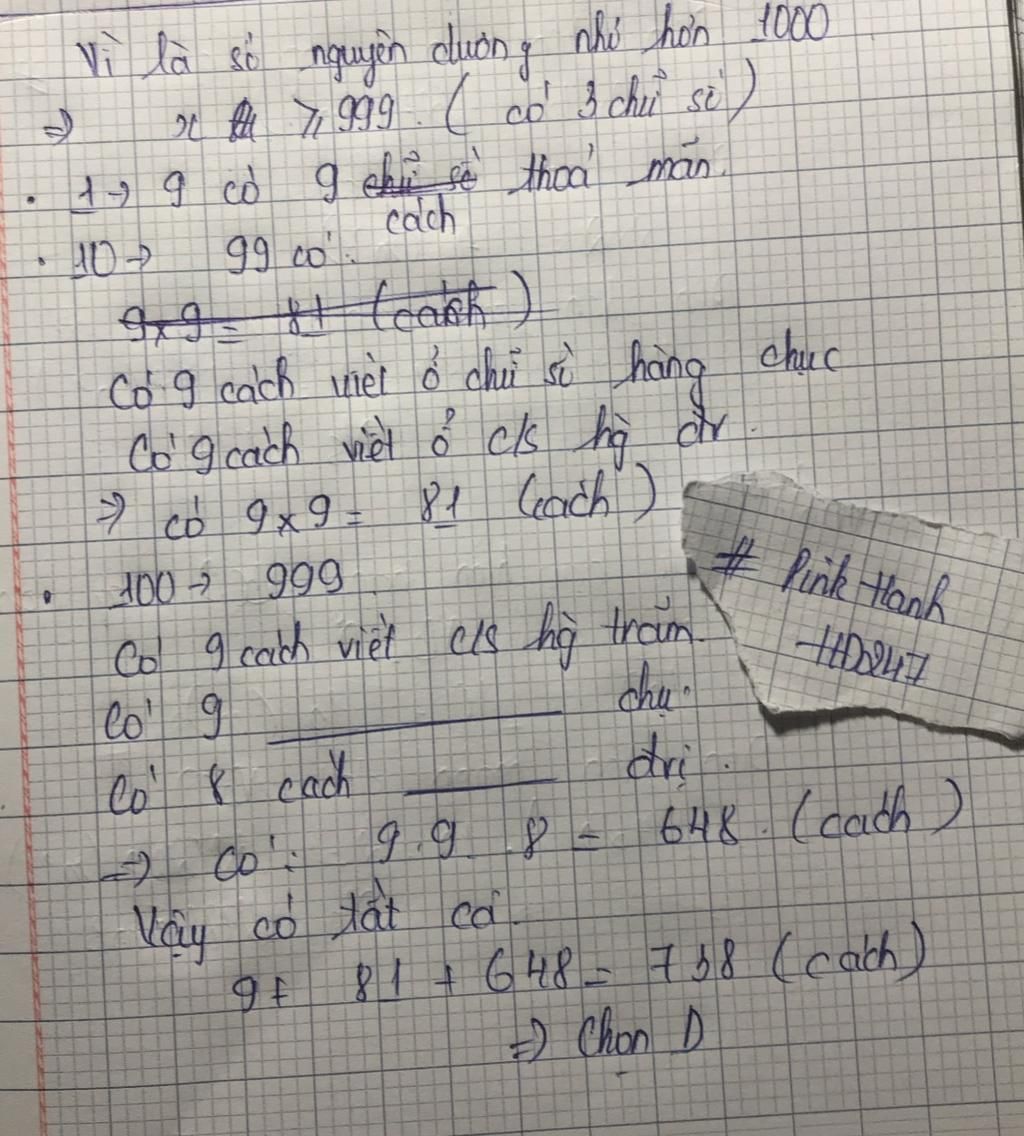 Vì là số nguyên dương nhỏ hơn 1000
⇒ x ⩾ 999. ( có 3 chữ số )
. 1 → 9 có 9 chữ số thoả mãn.
cách
. 10 → 99 có :
9 x 9 = 81 (cách )
Có 9 cách viết ở chữ số hàng chục
Có 9 cách viết ở c/s hg đv .
⇒ có 9 x 9 = 81 (cách )
. 100 → 999
Có 9 cách viết c/s hg trăm
Có 9 ______ chụ.
Có 8 cách ______ đvị .
⇒ có : 9 . 9 8 = 648 . (cách )
Vậy có tất cả .
9 + 81 + 648 = 738 (cách )
⇒ Chọn D
# Pink Hanh
-HD247